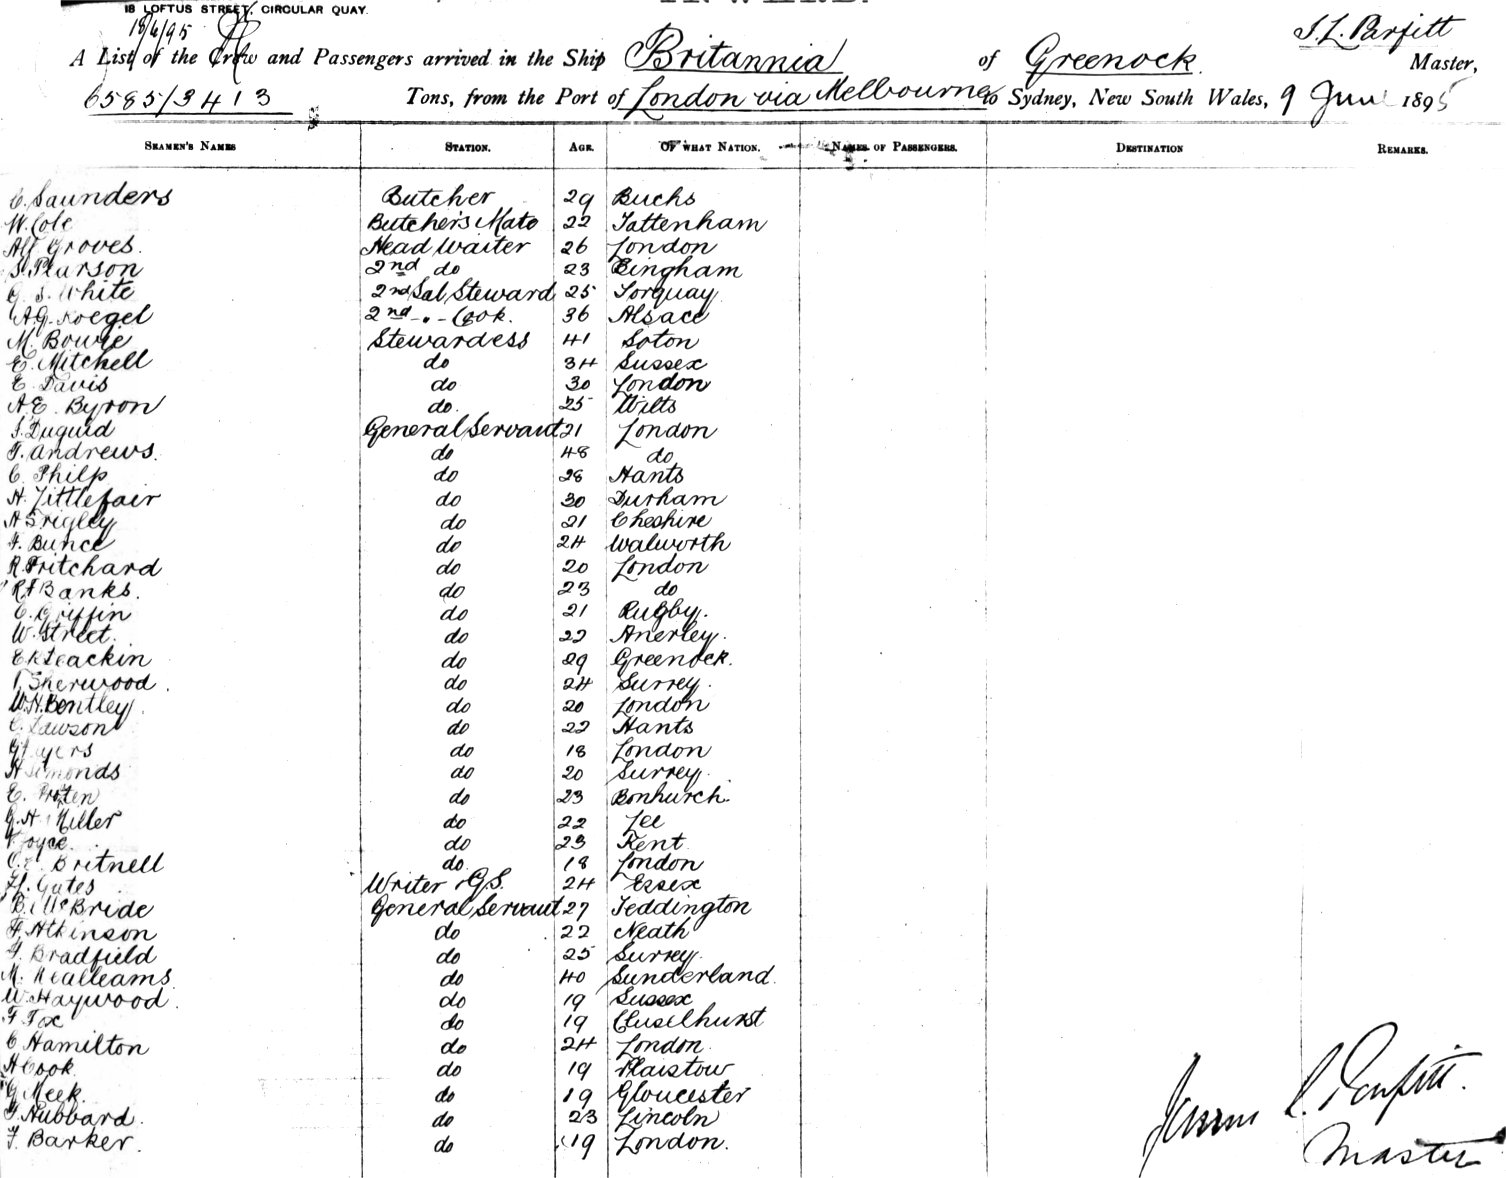 18 LOFTUS STREET, CIRCULAR QUAY.
18/6/95
J. L. Parfitt
A List of the Crew and Passengers arrived in the Ship Britannia of Greenock Master,
6585/3413 Tons, from the Port of London via Melbourne to Sydney, New South Wales, 9 June 1895
SEAMEN'S NAMES STATION. AGE. OF WHAT NATION. NAMES OF PASSENGERS. DESTINATION REMARKS.
C. Saunders Butcher 29 Bucks
W. Cole Butcher's Mate 22 Tattenham
Alf Groves. Head Waiter 26 London
S. Pearson 2nd do 23 Bingham
G. S. White 2nd Sal Steward 25 Torquay
A. G. Koegel 2nd - " - Cook. 36 Alsace
M. Bowie Stewardess 41 Soton
E. Mitchell do 34 Sussex
E. Davis do 30 London
A. E. Byron do. 25 Wilts
J. Duguid General Servant 21 London
T. Andrews. do 48 do
C. Philp do 28 Hants
H. Littlefair do 30 Durham
A Srigley do 21 Cheshire
F. Bunce do 24 Walworth
R. Pritchard do 20 London
R F Banks. do 23 do
C. Griffin do 21 Rugby.
W. Street. do 22 Anerley.
E R Leackin do 29 Greenock.
Sherwood. do 24 Surrey.
W. H. Bentley. do 20 London
C. Lawson do 22 Hants
G Fayers do 18 London
H Simonds do 20 Surrey.
E. Proten do 23 Bonhurch.
G. H. Miller do 22 Lee
Joyce. do 23 Kent
C. E. Britnell do. 18 London
H. Gates Writer & G.S. 24 Essex
B. McBride General Servant 27 Teddington
F. Atkinson do 22 Neath
F. Bradfield do 25 Surrey.
M. do 40 Sunderland.
W. Haywood. do 19 Sussex
F Fox do 19 Chiselhurst
C Hamilton do 24 London.
H Cook do 19 Plaistow
G Meek. do 19 Gloucester
T. Hubbard. do 23 Lincoln
F. Barker. do 19 London.
James L. Parfitt.
Master